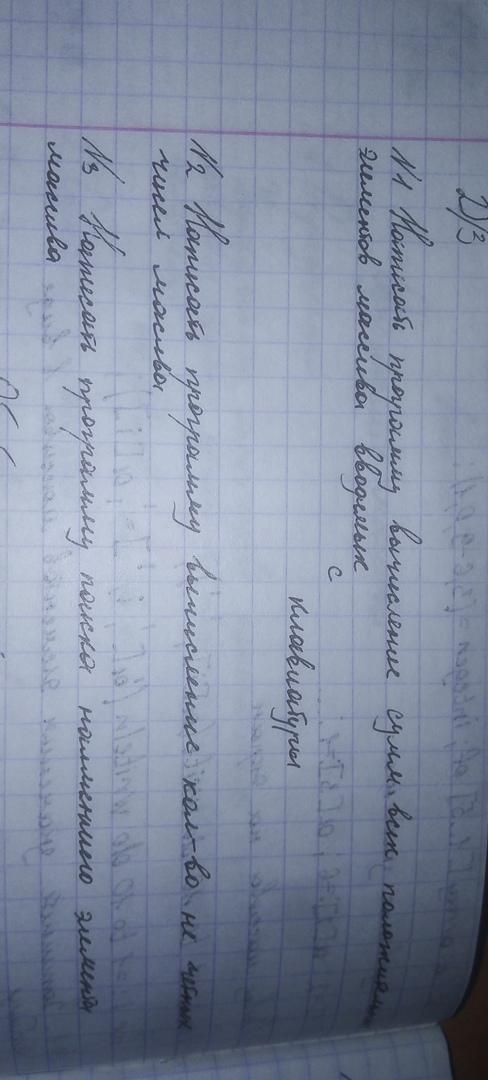 Д/з
№1 Написать программу вычисление сумм всех
элементов массива вводимых с
клавиатуры
№2 Написать программу вычисление кол-во не четных
чисел массива
№3 Написать программу поиска наименьшего элемента
массива